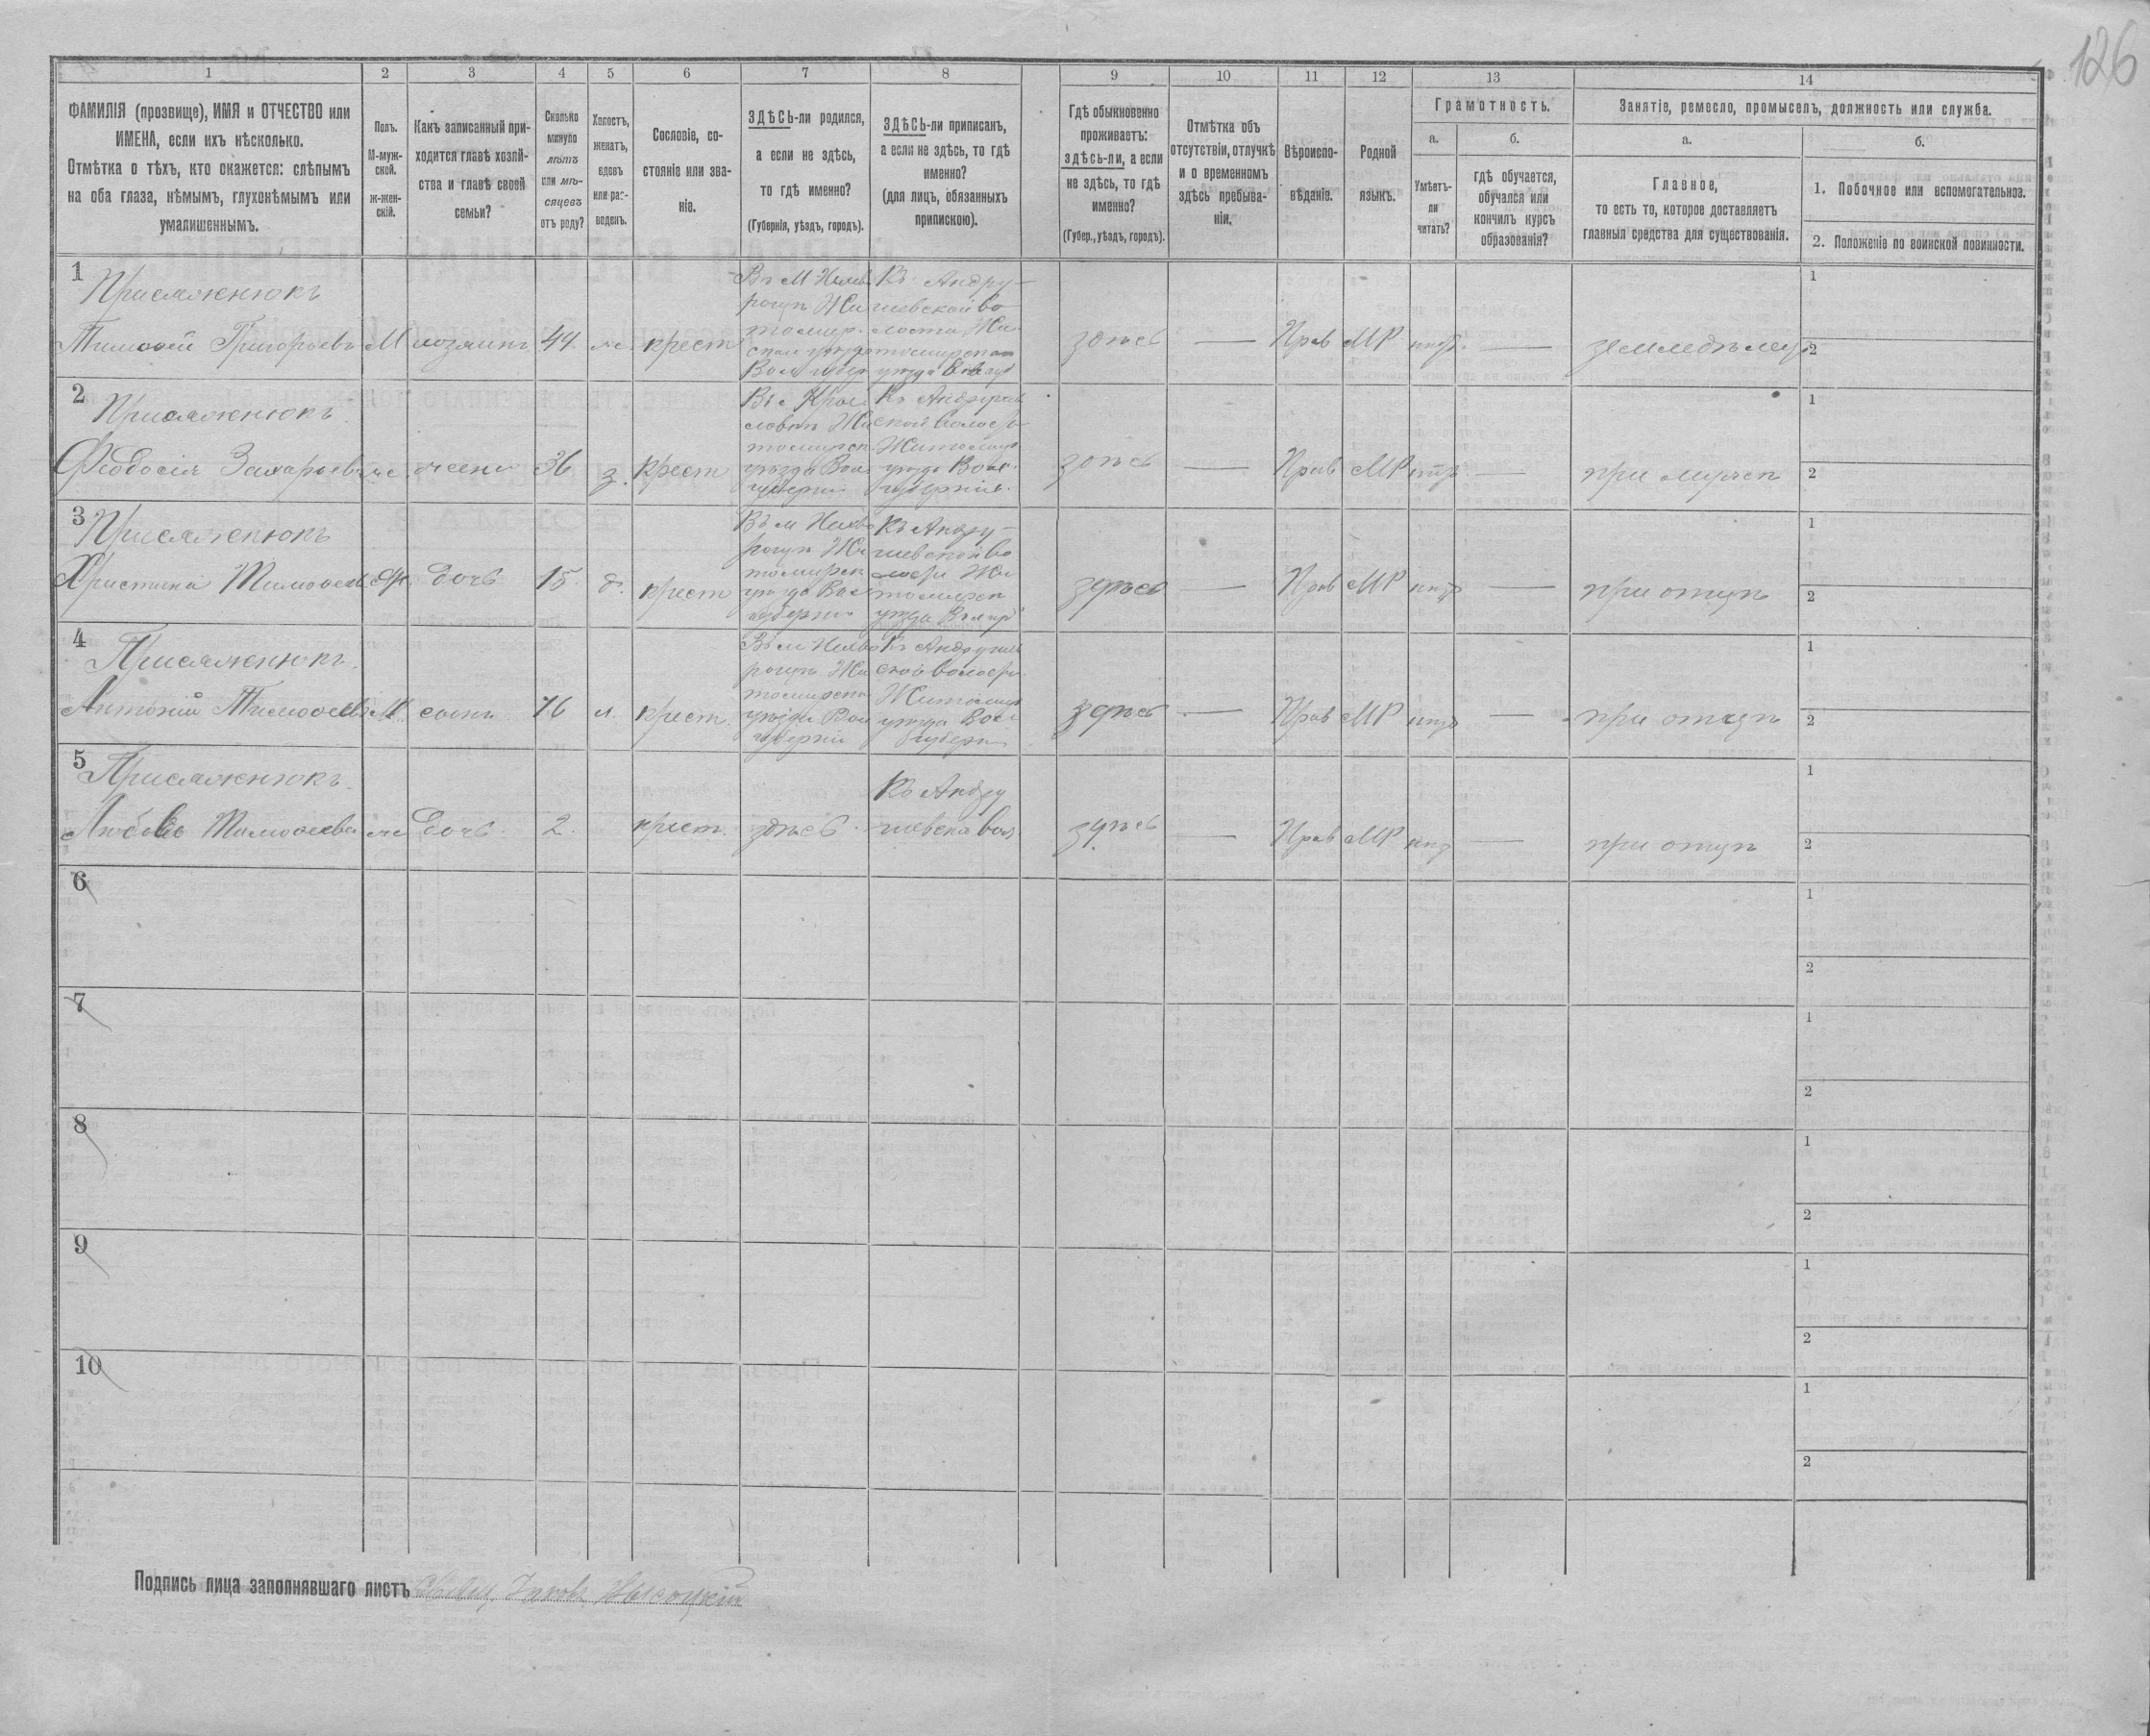 126
1 2 3 4 5 6 7 8 9 10 11 12 13 14
ФАМИЛІЯ (прозвище), ИМЯ и ОТЧЕСТВО или
ИМЕНА, если ихъ нѣсколько.
Отмѣтка о тѣхъ, кто окажется: слѣпымъ
на оба глаза, нѣмымъ, глухонѣмымъ или
умалишеннымъ.
Полъ.
М-муж-
ской.
ж-жен-
скій.
Какъ записанный при-
ходится главѣ хозяй-
ства и главѣ своей
семьи?
Сколько
минуло
лѣтъ
или мѣ-
сяцевъ
отъ роду?
Холостъ,
женатъ,
вдовъ
или раз-
веденъ.
Сословіе, со-
стояніе или зва-
ніе.
ЗДѢСЬ-ли родился,
а если не здѣсь,
то гдѣ именно?
(Губернія, уѣздъ, городъ).
ЗДѢСЬ-ли приписанъ,
а если не здѣсь, то гдѣ
именно?
(для лицъ, обязанныхъ
припискою).
Гдѣ обыкновенно
проживаетъ:
здѣсь-ли, а если
не здѣсь, то гдѣ
именно?
(Губер., уѣздъ, городъ).
Отмѣтка объ
отсутствіи, отлучкѣ
и о временномъ
здѣсь пребыва-
ніи.
Вѣроиспо-
вѣданіе.
Родной
языкъ.
Грамотность.
а.
Умѣетъ-
ли
читать?
б.
гдѣ обучается,
обучался или
кончилъ курсъ
образованія?
Занятіе, ремесло, промыселъ, должность или служба.
а.
Главное,
то есть то, которое доставляетъ
главныя средства для существованія.
б.
1. Побочное или вспомогательное.
2. Положеніе по воинской повинности.
1
Присяжнюкъ
Тимофей Григорьевъ М хозяинъ 44 ж крест
здѣсь — Прав МР — земледѣлец
1
2
2
Присяжнюкъ
Феодосія Захарьев ж жена 36 з. крест
уѣзда Вол
губерніи
Къ Андруш
ской волос
Житомир
уѣзда Вол.
губерніи.
здѣсь — Прав МР — при мужѣ
1
2
3
Присяжнюкъ
Христина Тимофеев ж дочь 15 д. крест
Къ Андру-
шевской во
здѣсь — Прав МР — при отцѣ
1
2
4
Присяжнюкъ.
Антоній Тимофеев М. сынъ 16 х. крест.
губерніи
Житомир
уѣзда Вол
губерн
здѣсь — Прав МР — при отцѣ
1
2
5
Присяжнюкъ.
Любовь Тимофеева ж дочь 2. крест. здѣсь
Къ Андру
шевской вол
здѣсь — Прав МР — при отцѣ
1
2
6
1
2
7
1
2
8
1
2
9
1
2
10
1
2
Подпись лица заполнявшаго листъ Высоцкій